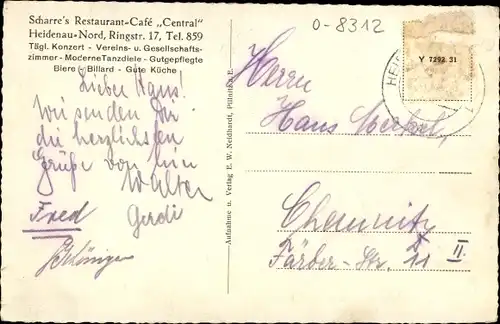 Scharre's Restaurant-Café „Central"
Heidenau-Nord, Ringstr. 17, Tel. 859
Tägl. Konzert - Vereins- u. Gesellschafts-
zimmer - Moderne Tanzdiele - Gutgepflegte
Biere - Billard - Gute Küche
0-8312
Y 7292 31
HEID
Lieber Hans!
Wir senden Dir
die herzlichsten
Grüße von hier
Walter
Fred Gerdi
Aufnahme u. Verlag E. W. Neidhardt, Pillnitz a. E.
Herrn
Hans
Chemnitz
Färber-Str. 11 II.